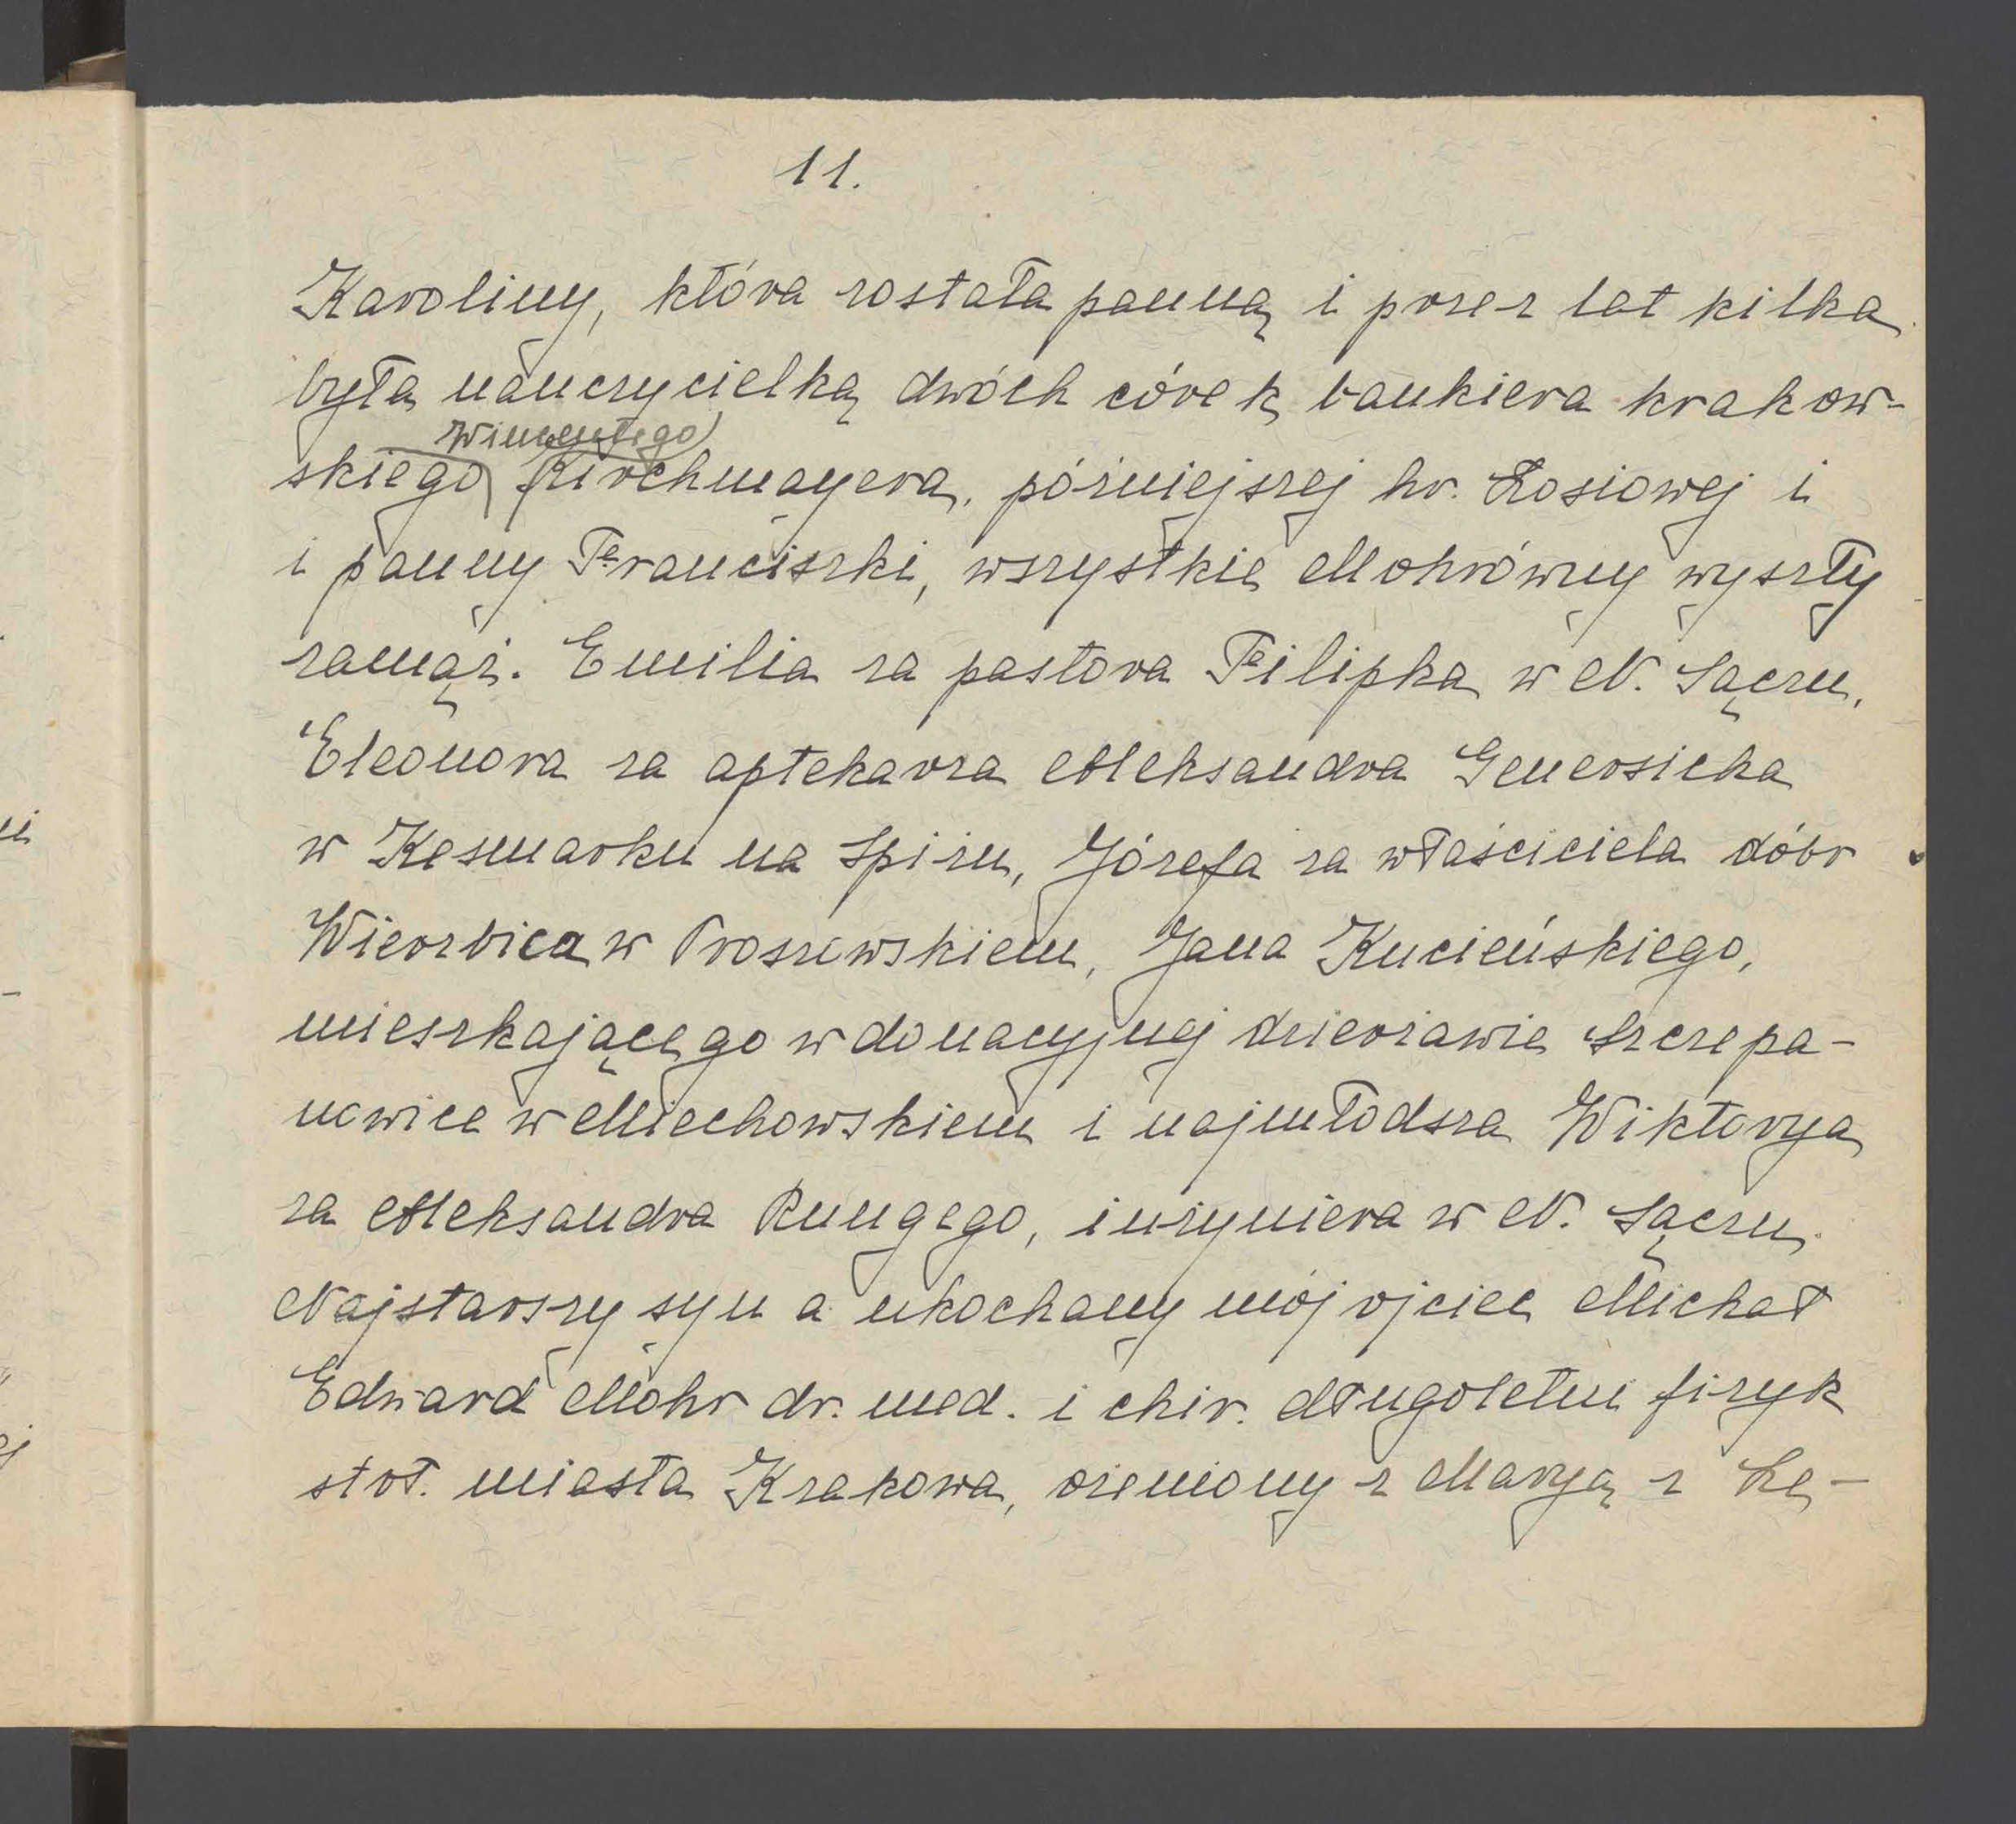 11.
Karoliny, która została panną i przez lat kilka
była nauczycielką dwóch córek bankiera krakow-
Wincentego
skiego Kirchmayera, późniejszej hr. Łosiowej i
i panny Franciszki, wszystkie Mohrówny wyszły
zamąż. Emilia za pastora Filipka w N. Sączu,
Eleonora za aptekarza Aleksandra Genersicha
w Kesmarku na Spiżu, Józefa za właściciela dóbr
Wierzbica w Proszowskiem, Jana Kucieńskiego,
mieszkającego w donacyjnej dzierżawie Szczepa-
nowice w Miechowskiem i najmłodsza Wiktorya
za Aleksandra Rungego, inżyniera w N. Sączu.
Najstarszy syn a ukochany mój ojciec Michał
Edward Mohr dr. med. i chir. długoletni fizyk
stoł. miasta Krakowa, ożeniony z Maryą z Łę-